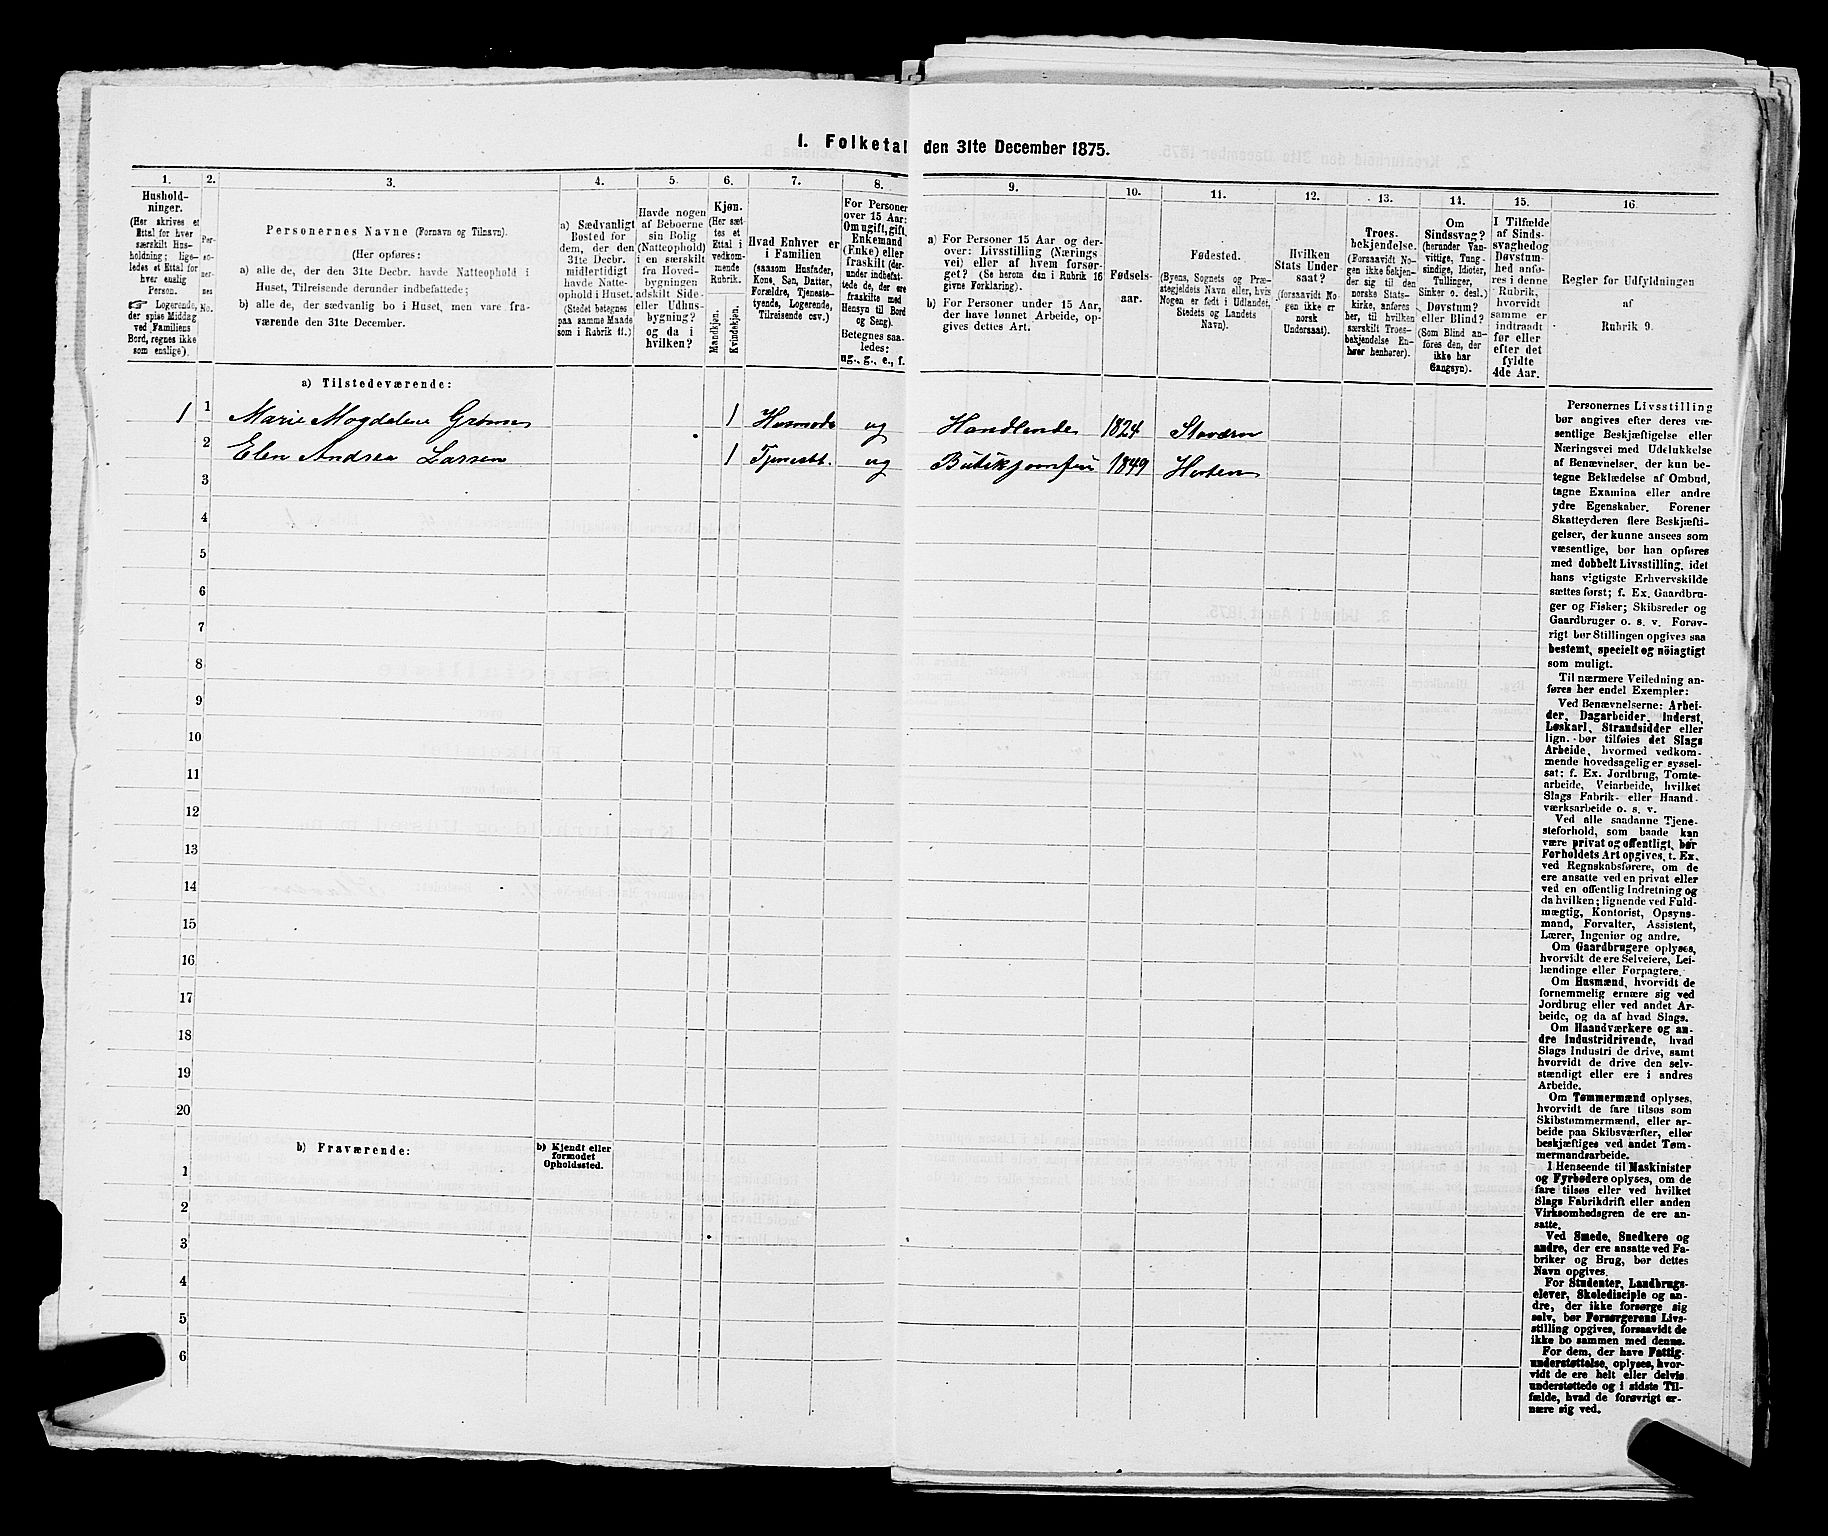 1. Folketal den 31te December 1875.
1. 2. 3. 4. 5. 6. 7. 8. 9. 10. 11. 12. 13. 14. 15. 16
Hushold-
ninger.
(Her skrives et
Ettal for hver
særskilt Hus-
holdning; lige-
ledes et Ettal for
hver enslig
Person.
☞ Logerende,
der spise Middag
ved Familiens
Bord, regnes ikke
som enslige).
Per-
so-
ner-
nes
No.
Personernes Navne (Fornavn og Tilnavn).
(Her opføres:
a) alle de, der den 31te Decbr. havde Natteophold i
Huset, Tilreisende derunder indbefattede;
b) alle de, der sædvanlig bo i Huset, men vare fra-
værende den 31te December.
a) Sædvanligt
Bosted for
dem, der den
31te Decbr.
midlertidigt
havde Natte-
ophold i Huset.
(Stedet betegnes
paa samme Maade
som i Rubrik 11.)
Havde nogen
af Beboerne
sin Bolig
(Natteophold)
i en særskilt
fra Hoved-
bygningen
adskilt Side-
eller Udhus-
bygning?
og da i
hvilken?
Kjøn.
(Her sæt-
tes et
Ettal i
vedkom-
mende
Rubrik.
Mandkjøn.
Kvindekjøn.
Hvad Enhver er
i Familien
(saasom Husfader,
Kone, Søn, Datter,
Forældre, Tjeneste-
tyende, Logerende,
Tilreisende osv.).
For Personer
over 15 Aar:
Om ugift, gift,
Enkemand
(Enke) eller
fraskilt (der-
under indbefat-
tede de, der ere
fraskilte med
Hensyn til Bord
og Seng).
Betegnes saa-
ledes:
ug., g., e., f.
a) For Personer 15 Aar og der-
over: Livsstilling (Nærings
vei) eller af hvem forsør-
get? (Se herom den i Rubrik 16
givne Forklaring).
b) For Personer under 15 Aar,
der have lønnet Arbeide, op-
gives dettes Art.
Fødsels-
aar.
Fødested.
(Byens, Sognets og Præ-
stegjeldets Navn eller, hvis
Nogen er født i Udlandet,
Stedets og Landets
Navn).
Hvilken
Stats Under
saat?
(forsaavidt No-
gen ikke er
norsk
Undersaat).
Troes-
bekjendelse.
(Forsaavidt No-
gen ikke bekjen-
der sig til den
norske Stats-
kirke, anføres
her, til hvilken
særskilt Troes-
bekjendelse En-
hver henhører).
Om
Sindssvag?
(herunder Van-
vittige, Tung-
sindige, Idioter,
Tullinger,
Sinker o. desl.)
Døvstum?
eller Blind?
(Som Blind an-
føres den, der
ikke har
Gangsyn).
I Tilfælde
af Sinds-
svaghed og
Døvstum-
hed anfø-
res i denne
Rubrik,
hvorvidt
samme er
indtraadt
før eller
efter det
fyldte
4de Aar.
Regler for Udfyldningen
af
Rubrik 9.
a) Tilstedeværende:
1 1 Marie Magdalene Grønn 1 Husmoder ug Handlende 1824 Stavern
2 Elen Andrea Larsen 1 Tjenestet. ug Butikjomfru 1849 Horten
3
4
5
6
7
8
9
10
11
12
13
14
15
16
17
18
19
20
b) Fraværende:
b) Kjendt eller
formodet
Opholdssted.
1
2
3
4
5
6
Personernes Livsstilling
bør angives efter deres væ-
sentlige Beskjæftigelse eller
Næringsvei med Udelukkelse
af Benævnelser, der kun be-
tegne Beklædelse af Ombud,
tagne Examina eller andre
ydre Egenskaber. Forener
Skatteyderen flere Beskjæfti-
gelser, der kunne ansees som
væsentlige, bør han opføres
med dobbelt Livsstilling, idet
hans vigtigste Erhvervskilde
sættes først; f. Ex. Gaardbru-
ger og Fisker; Skibsreder og
Gaardbruger o. s. v. Forøv-
rigt bør Stillingen opgives saa
bestemt, specielt og nöiagtigt
som muligt.
Til nærmere Veiledning an-
føres her endel Exempler:
Ved Benævnelserne: Arbei-
der, Dagarbeider, Inderst,
Løskarl, Strandsidder eller
lign. bør tilføies det Slags
Arbeide, hvormed vedkom-
mende hovedsagelig er syssel-
sat: f. Ex. Jordbrug, Tomte-
arbeide, Veiarbeide, hvilket
Slags Fabrik- eller Haand
værksarbeide o. s. v.
Ved alle saadanne Tjene-
steforhold, som baade kan
være privat og offentligt, bør
Forholdets Art opgives, t. Ex.
ved Regnskabsførere, om de
ere ansatte ved en privat eller
ved en offentlig Indretning og
da hvilken; lignende ved Fuld-
mægtig, Kontorist, Opsyns-
mand, Forvalter, Assistent,
Lærer, Ingeniør og andre.
Om Gaardbrugere oplyses,
hvorvidt de ere Selveiere, Lei-
lændinge eller Forpagtere.
Om Husmænd, hvorvidt de
fornemmelig ernære sig ved
Jordbrug eller ved andet Ar-
beide, og da af hvad Slags.
Om Haandværkere og an-
dre Industridrivende, hvad
Slags Industri de drive, samt
hvorvidt de drive den selv-
stændigt eller ere i andres
Arbeide.
Om Tømmermænd oplyses,
hvorvidt de fare tilsøs som
Skibstømmermænd, eller ar-
beide paa Skibsværfter, eller
beskjæftiges ved andet Tøm-
mermandsarbeide.
I Henseende til Maskinister
og Fyrbødere oplyses, om de
fare tilsøs eller ved hvilket
Slags Fabrikdrift eller anden
Virksomhedsgren de ere an-
satte.
Ved Smede, Snedkere og
andre, der ere ansatte ved Fa-
briker og Brug, bør dettes
Navn opgives.
For Studenter, Landbrugs-
elever, Skoledisciple og an-
dre, der ikke forsørge sig
selv, bør Forsørgerens Livs-
stilling opgives, forsaavidt de
ikke bo sammen med denne.
For dem, der have Fattig-
understøttelse, oplyses, hvor-
vidt de ere helt eller delvis
understøttede og i sidste Til-
fælde, hvad de forøvrigt er-
nære sig ved.